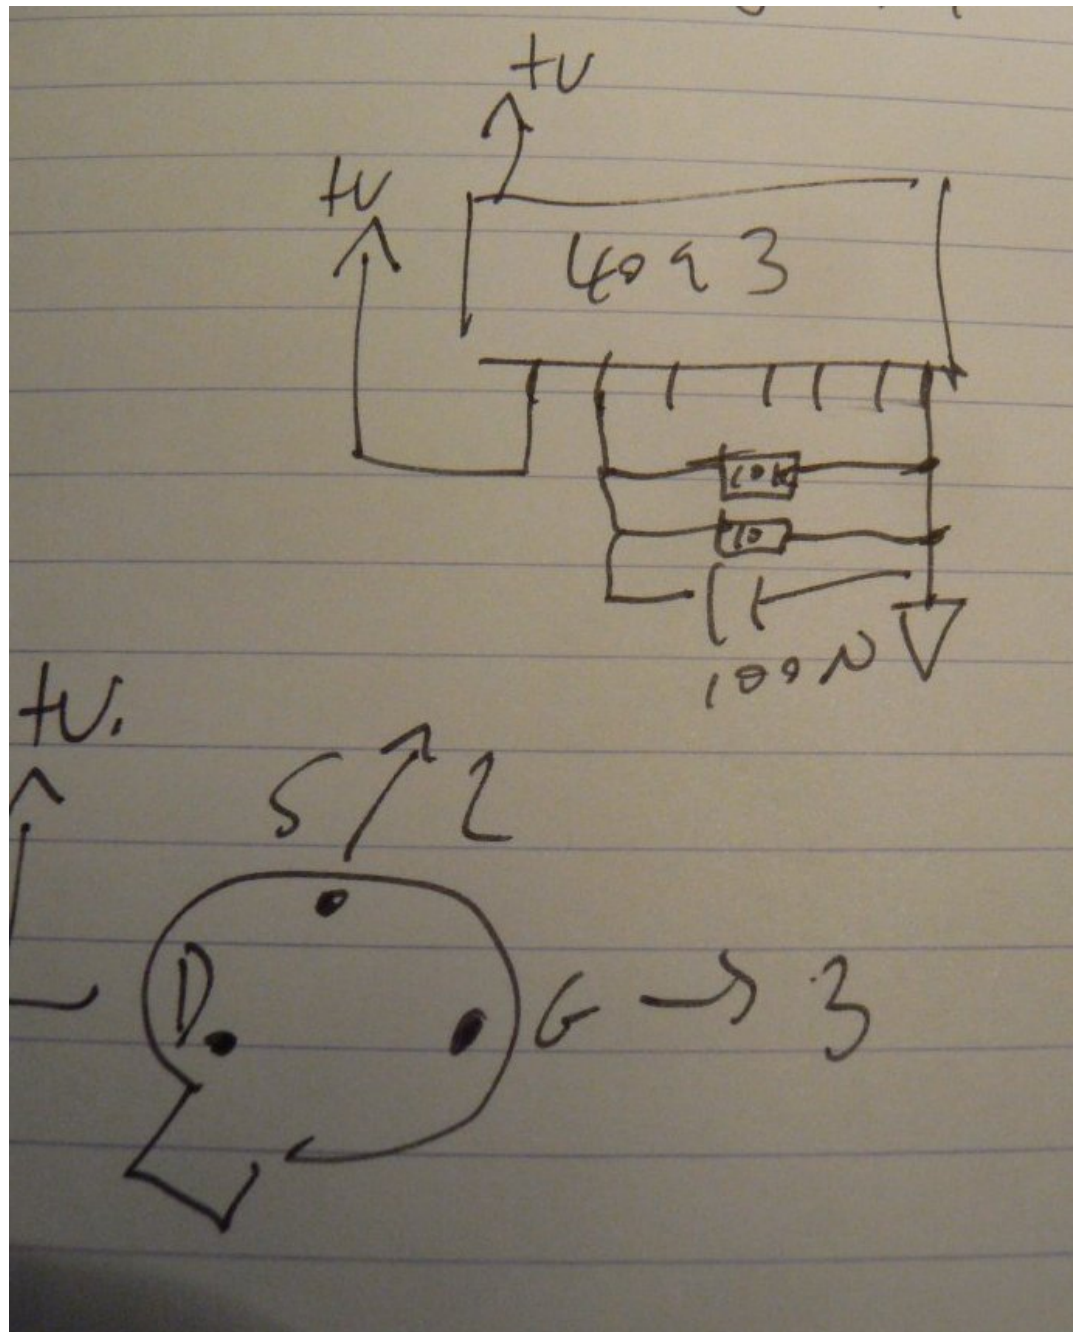 +V
+V
4093
10K
10
100N
+V.
S 2
D
G → 3